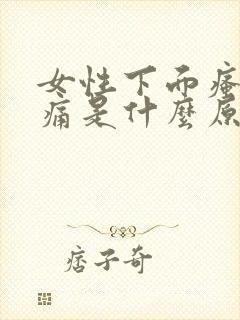 女性下而瘙
痛是什麼原
痞子奇